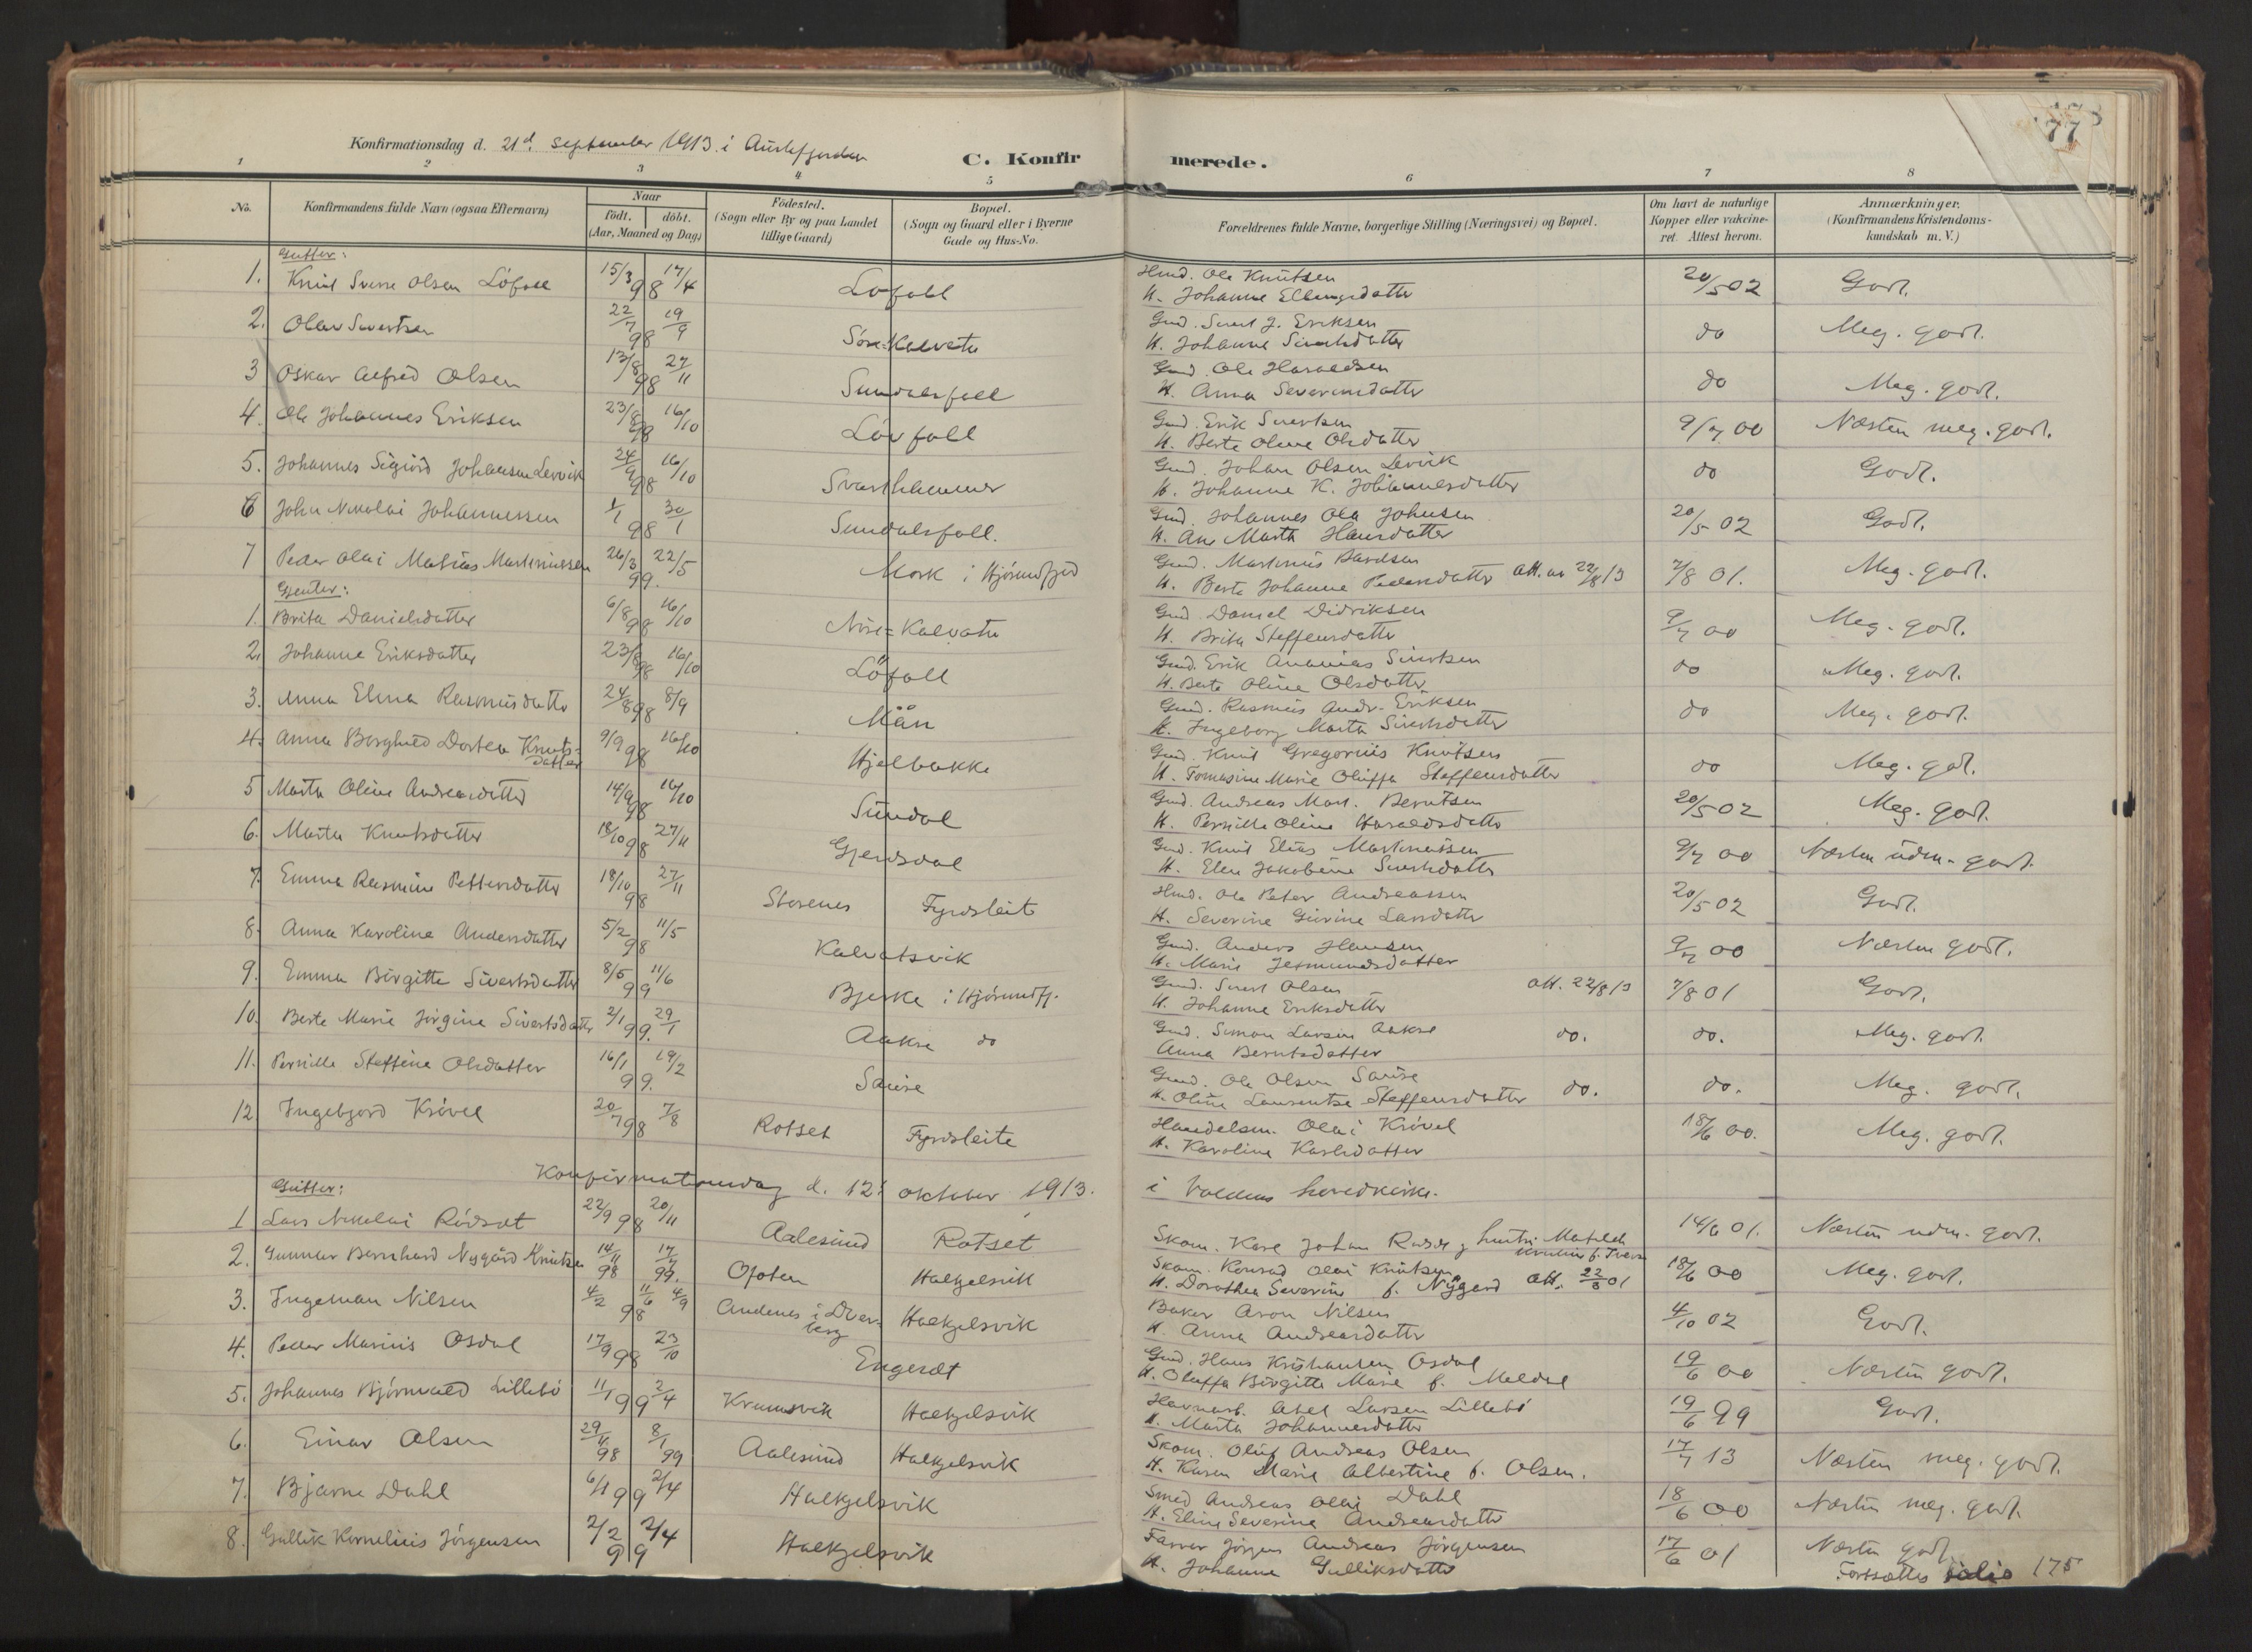 77
Konfirmationsdag d. 21d. September 1913. i Austefjorden
C. Konfirmerede.
1 2 3 4 5 6 7 8
No. Konfirmandens fulde Navn (ogsaa Efternavn) Naar født. døbt. (Aar, Maaned og Dag) Fødested. (Sogn eller By og paa Landet tillige Gaard) Bopæl. (Sogn og Gaard eller i Byerne Gade og Hus-No. Forældrenes fulde Navne, borgerlige Stilling (Næringsvei) og Bopæl. Om havt de naturlige Kopper eller vakcineret. Attest herom. Anmærkninger. (Konfirmandens Kristendomskundskab m. V.)
Gutter:
1. Knut Sverre Olsen Löfoll 15/3 98 17/4 Lofoll Hmd. Ole Knutsen H. Johanne Ellingsdatter 20/5 02 Godt.
2. Olav Sivertsen 22/7 98 19/9 Söre-Kalvatn Gmd. Sivert J. Eriksen H. Johanne Sivertsdatter do Meg. godt.
3 Oskar Alfred Olsen 13/8 98 27/11 Sundalsfoll Gmd. Ole Haraldsen H. Anna Severinsdatter do Meg. godt.
4. Ole Johannes Eriksen 23/8 98 16/10 Lövfoll Gmd. Erik Sivertsen H. Berte Oline Olsdatter 9/7 00 Næsten meg. godt.
5. Johannes Sigurd Johansen Levvik 24/9 98 16/10 Svarthammer Gmd. Johan Olsen Levvik H. Johanne K. Johannesdatter do Godt.
6 John Nikolai Johannessen 1/1 98 30/1 Sundalsfoll. Gmd. Johannes Ola Johnsen H. Ane Marta Hansdatter 20/5 02 Godt.
7 Peder Olai Matias Martinussen 26/3 99. 22/5 Mork i Hjörundfjord Gmd. Martinus Davidsen H. Berte Johanne Pedersdatter Att. av 22/8 13 7/8 01. Meg. godt.
Genter:
1. Brita Danielsdatter 6/8 98 16/10 Nore=Kalvatn Gmd. Daniel Didriksen H. Brita Steffensdatter 9/7 00 Meg. godt.
2. Johanne Eriksdatter 23/8 98 16/10 Löfoll Gmd. Erik Ananias Sivertsen H. Berte Oline Olsdatter do Meg. godt.
3. Anna Elina Rasmusdatter 24/8 98 8/9 Mån Gmd. Rasmus Andr. Eriksen H. Ingeborg Marta Sivertsdatter do Meg. godt.
4. Anna Borghild Dortea Knuts=datter 9/9 98 16/10 Hjelbakke Gmd. Knut Gregorius Knutsen H. Tomasine Marie Oluffa Steffensdatter do Meg. godt.
5 Marta Oline Andreasdatter 14/9 98 16/10 Sundal Gmd. Andreas Mart. Berntsen H. Pernille Oline Haraldsdatter 20/5 02 Meg. godt.
6. Marta Knutsdatter 18/10 98 27/11 Gjerdsdal Gmd. Knut Elias Martinussen H. Elen Jakobine Sivertsdatter 9/7 00 Næsten udm. godt.
7. Emma Rasmine Pettersdatter 18/10 98 27/11 Storenes Fyrdsleite Hmd. Ole Peter Andreassen H. Severine Gurine Larsdatter 20/5 02 Godt.
8. Anna Karoline Andersdatter 5/2 98 11/5 Kalvatsvik Gmd. Anders Hansen H. Marie Jetmundsdatter 9/7 00 Næsten godt.
9. Emma Birgitte Sivertsdatter 8/5 99 11/6 Bjerke i Hjörundfj. Gmd. Sivert Olsen H. Johanne Eriksdatter Att. 22/8 13 7/8 01 Godt.
10. Berte Marie Jörgine Sivertsdatter 2/1 99. 29/1 Aakre do Gmd. Simon Larsen Aakre Anna Berntsdatter do. do. Meg. godt.
11. Pernille Steffine Olsdatter 16/1 99. 19/2 Saure Gmd. Ole Olsen Saure H. Oline Laurentse Steffensdatter do. do. Meg. godt.
12. Ingebjord Krövel 20/7 98 7/8 Rotset Fyrdsleite Handelsm. Olai Krövel H. Karoline Karlsdatter 18/6 00. Meg. godt.
Konfirmationsdag d. 12. oktober 1913. i Voldens hovedkirke.
Gutter:
1 Lars Nikolai Rödset 22/9 98 20/11 Aalesund Rotset Skom. Karl Johan hustru Matilde 14/6 01. Næsten udm. godt.
2. Gunnar Bernhard Nygård Knutsen 14/11 98 17/ 99. Ofoten Halkjelsvik Skom. Konrad Olai Knutsen H. Dorothea Severine f. Nygård Att. 22/3 01 18/6 00 Meg. godt.
3. Ingeman Nilsen 4/2 98 4/9 Andenes i Dverberg Halkjelsvik Baker Aron Nilsen H. Anna Andreasdatter 4/10 02 Godt.
4. Peder Marius Osdal 17/9 98 23/10 Engeset Gmd. Hans Kristiansen Osdal H. Oluffa Birgitte Marie f. Meldal 19/6 00 Næsten godt.
5. Johannes Björnvald Lillebö 11/1 99 2/4 Kramsvik Halkjelsvik Havnarb. Abel Larsen Lillebö H. Marta Johannesdatter 19/6 99 Godt.
6. Einar Olsen 29/11 98 8/1 99 Aalesund Halkjelsvik Skom. Oluf Andreas Olsen H. Karen Marie Albertine f. Olsen. 17/7 13 Næsten meg. godt.
7. Bjarne Dahl 6/1 99 2/4 Halkjelsvik Smed Andreas Olai Dahl H. Eline Severine Andreasdatter 18/6 00 Næsten meg. godt.
8. Gullik Kornelius Jörgensen 2/2 99 2/4 Halkjelsvik Farver Jörgen Andreas Jörgensen H. Johanne Gulliksdatter 17/6 01 Næsten godt.
Fortsættes folio 175